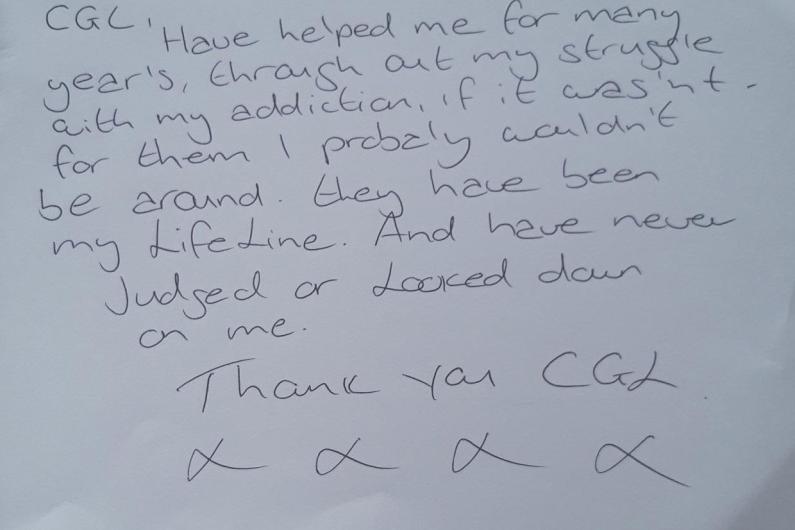 CGL, Have helped me for many
year's, through out my struggle
with my addiction, if it was'nt -
for them I probaly wouldn't
be around. they have been
my LifeLine. And have never
Judged or Looked down
on me.
Thank you CGL.
x x x x